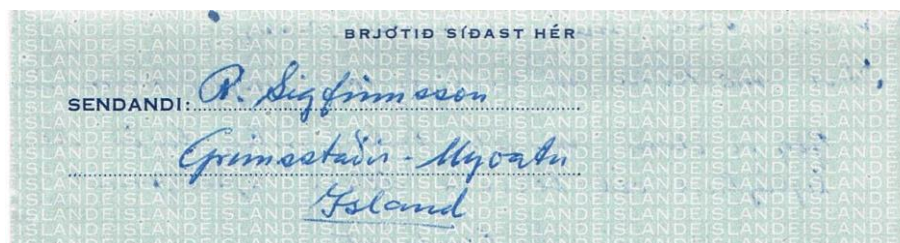 BRJÓTIÐ SÍÐAST HÉR
SENDANDI: R. Sigfinnsson
Grímsstaðir - Myvatn
Island